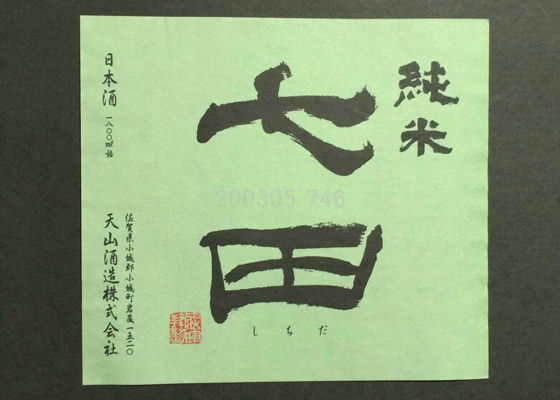 純米
七田
しちだ
日本酒 一八〇〇ml詰
佐賀県小城郡小城町岩蔵一五二〇
天山酒造株式会社
200305 746